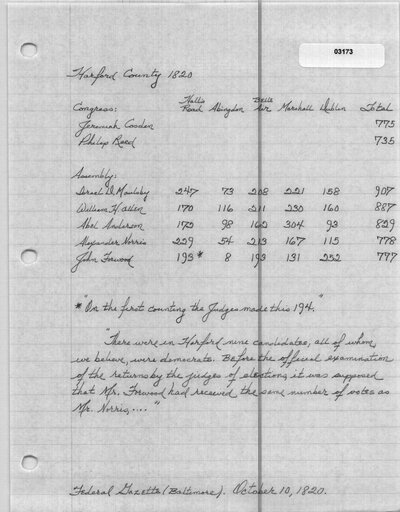 03173
Harford County 1820
Congress: Halls Road Abingdon Belle Air Marshall Dublin Total
Jeremiah Cosden 775
Philip Reed 735
Assembly:
Israel D. Maulsby 247 73 208 221 158 907
William H. Allen 170 116 211 230 160 887
Abel Anderson 172 98 162 304 93 829
Alexander Norris 229 54 213 167 115 778
John Forwood 193* 8 193 131 252 777
* "On the first counting the Judges made this 194."
"There were in Harford nine candidates, all of whom
we believe, were democrats. Before the official examination
of the returns by the judges of elections, it was supposed
that Mr. Forwood had received the same number of votes as
Mr. Norris...."
Federal Gazette (Baltimore). October 10, 1820.